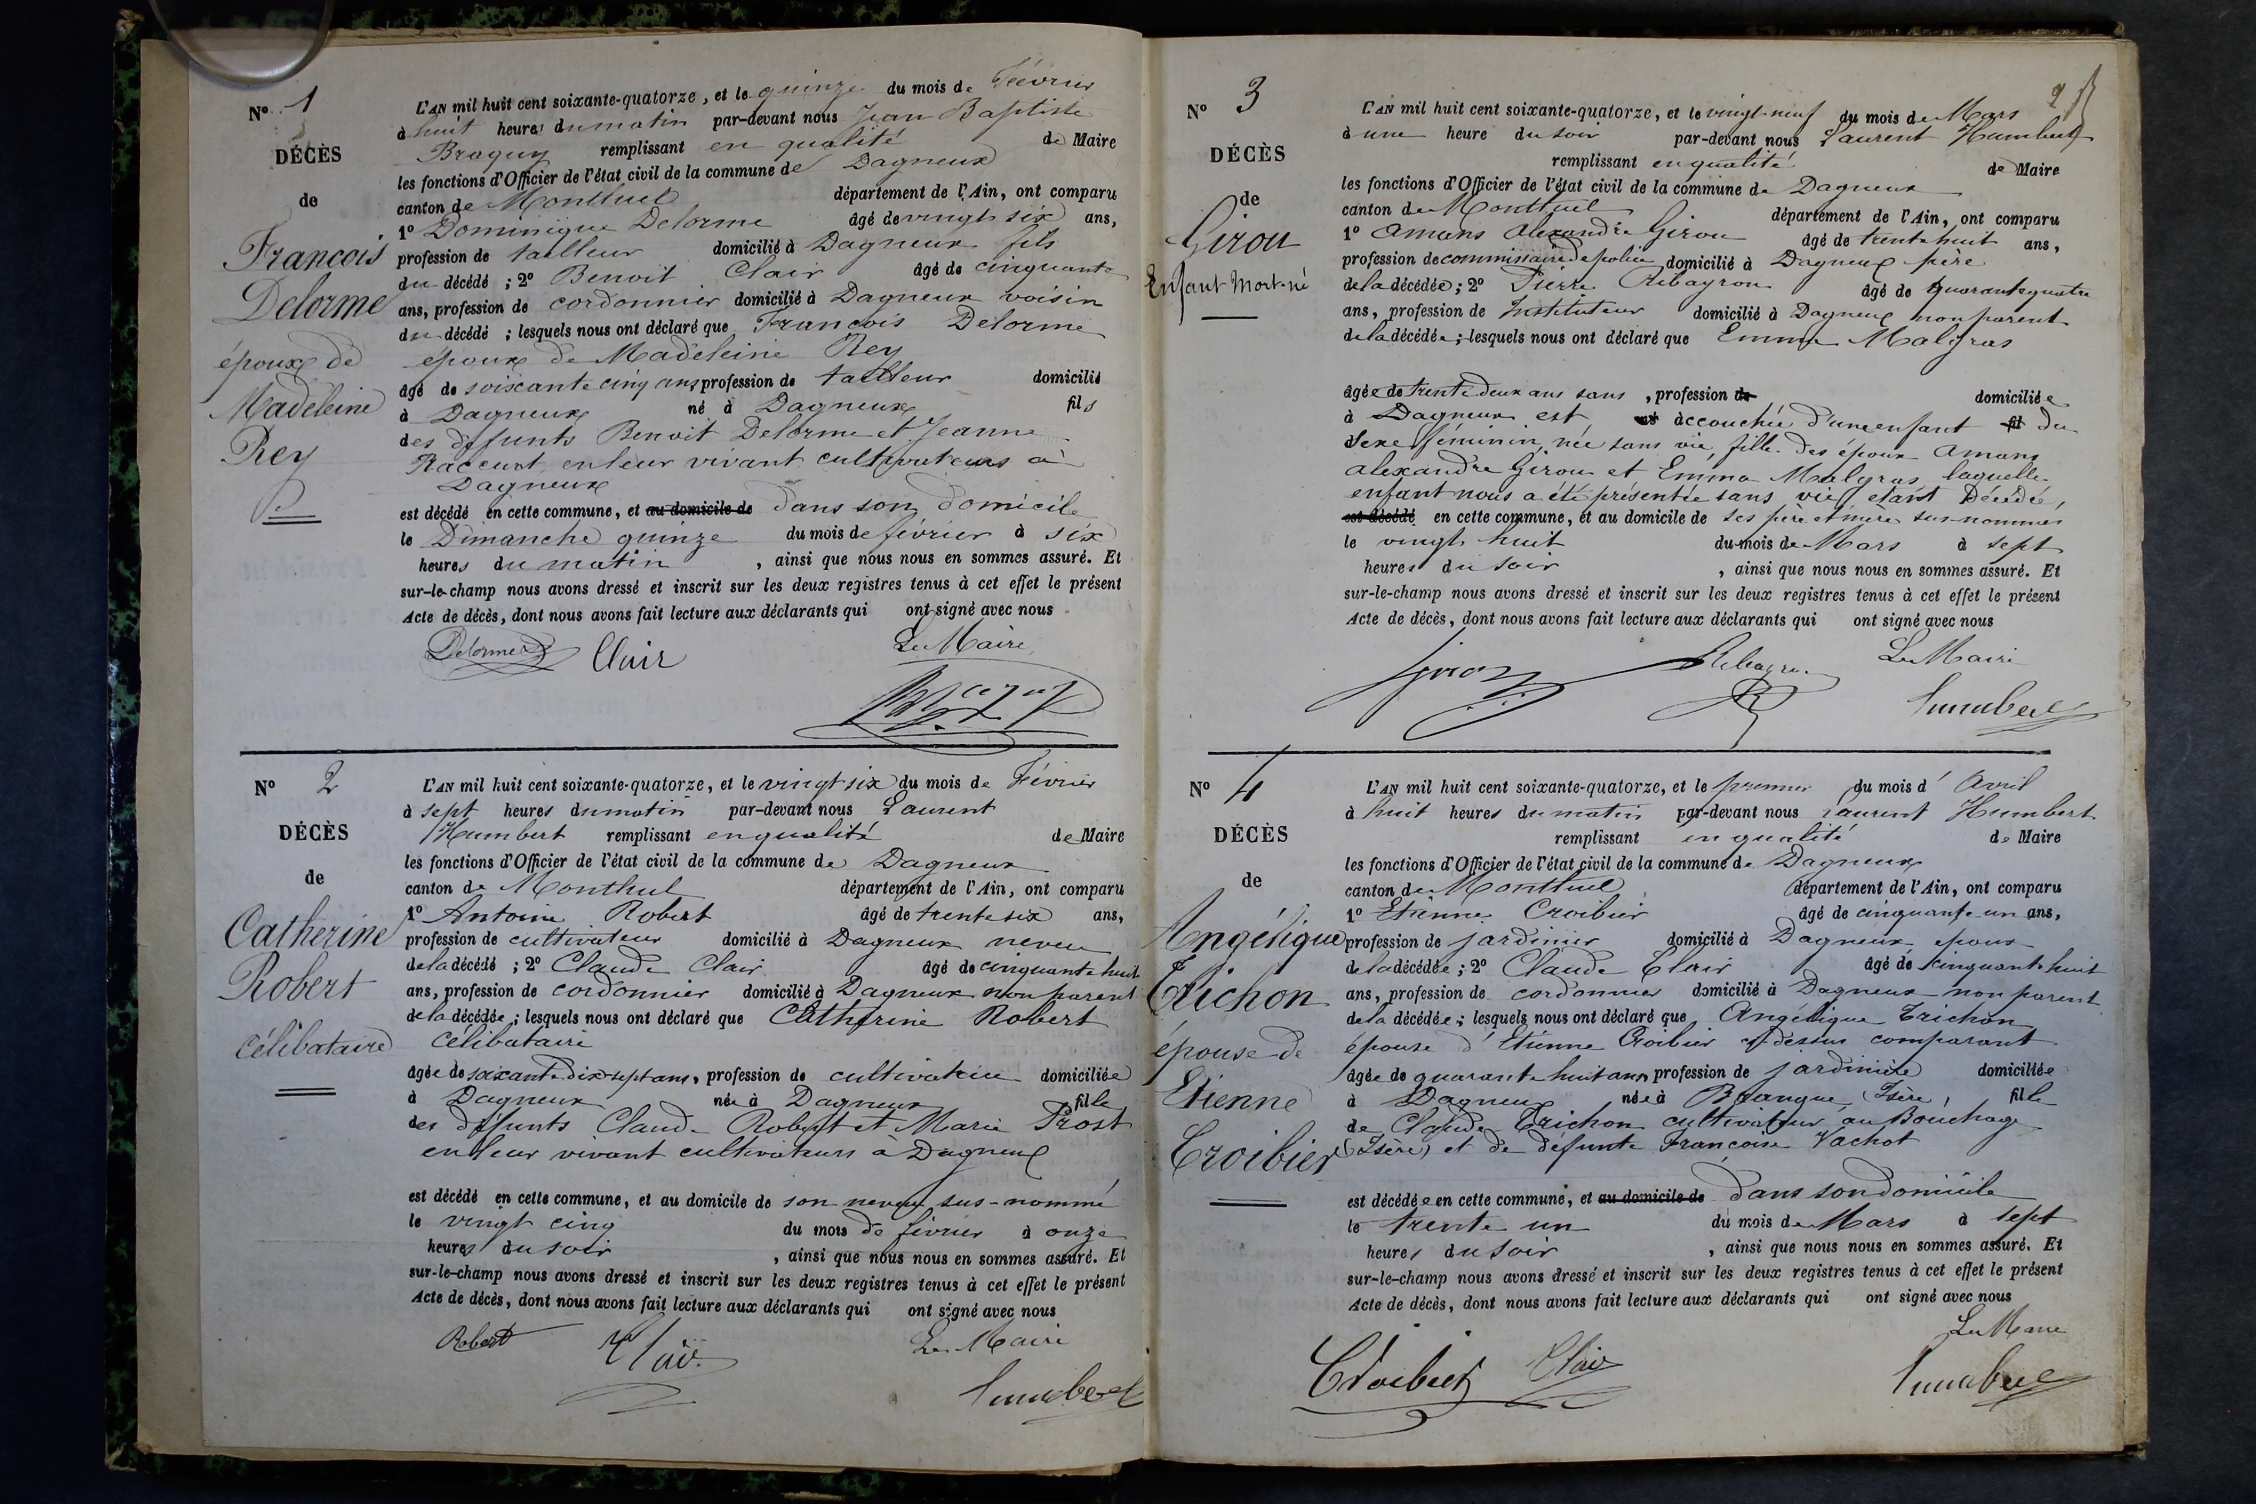 N° 1
DÉCÈS
de
François
Delorme
époux de
Madeleine
Rey
L'AN mil huit cent soixante-quatorze, et le quinze du mois de Février
à huit heures du matin par-devant nous Jean Baptiste
remplissant en qualité de Maire
les fonctions d'Officier de l'état civil de la commune de Dagneux
canton de Montluel département de l'Ain, ont comparu
1° Dominique Delorme âgé de vingt six ans,
profession de tailleur domicilié à Dagneux fils
du décédé ; 2° Benoit Clair âgé de cinquante
ans, profession de cordonnier domicilié à Dagneux voisin
du décédé ; lesquels nous ont déclaré que François Delorme
époux de Madeleine Rey
âgé de soixante cinq ans profession de tailleur domicilié
à Dagneux né à Dagneux fils
des défunts Benoit Delorme et Jeanne
Raccurt en leur vivant cultivateurs à
Dagneux
est décédé en cette commune, et au domicile de dans son domicile
le Dimanche quinze du mois de février à six
heures du matin , ainsi que nous nous en sommes assuré. Et
sur-le-champ nous avons dressé et inscrit sur les deux registres tenus à cet effet le présent
Acte de décès, dont nous avons fait lecture aux déclarants qui ont signé avec nous
Delorme Clair Le Maire
N° 2
DÉCÈS
de
Catherine
Robert
Célibataire
L'AN mil huit cent soixante-quatorze, et le vingt six du mois de Février
à sept heures du matin par-devant nous Laurent
Humbert remplissant en qualité de Maire
les fonctions d'Officier de l'état civil de la commune de Dagneux
canton de Montluel département de l'Ain, ont comparu
1° Antoine Robert âgé de trente six ans,
profession de cultivateur domicilié à Dagneux neveu
de la décédé ; 2° Claude Clair âgé de cinquante huit
ans, profession de cordonnier domicilié à Dagneux non parent
de la décédée ; lesquels nous ont déclaré que Catherine Robert
Célibataire
âgée de soixante dix sept ans, profession de cultivatrice domiciliée
à Dagneux née à Dagneux fille
des défunts Claude Robert et Marie Prost
en leur vivant cultivateurs à Dagneux
est décédé en cette commune, et au domicile de son neveu sus-nommé
le vingt cinq du mois de février à onze
heures du soir , ainsi que nous nous en sommes assuré. Et
sur-le-champ nous avons dressé et inscrit sur les deux registres tenus à cet effet le présent
Acte de décès, dont nous avons fait lecture aux déclarants qui ont signé avec nous
Robert Clair Le Maire
Humbert
2
N° 3
DÉCÈS
de
Girou
Enfant Mort-né
L'AN mil huit cent soixante-quatorze, et le vingt-neuf du mois de Mars
à une heure du soir par-devant nous Laurent Humbert
remplissant en qualité de Maire
les fonctions d'Officier de l'état civil de la commune de Dagneux
canton de Montluel département de l'Ain, ont comparu
1° Amans Alexandre Girou âgé de trente huit ans,
profession de commissaire de police domicilié à Dagneux père
de la décédée ; 2° Pierre Ribayron âgé de quarante quatre
ans, profession de Instituteur domicilié à Dagneux non parent
de la décédée ; lesquels nous ont déclaré que Emma Malgras
âgée de trente deux ans sans , profession de domiciliée
à Dagneux est accouchée d'une enfant fil du
Sexe féminin, née sans vie, fille des époux Amans
Alexandre Girou et Emma Malgras laquelle
enfant nous a été présentée sans vie, étant décédé,
est décédé en cette commune, et au domicile de ses père et mère sus-nommés
le vingt huit du mois de Mars à sept
heures du soir , ainsi que nous nous en sommes assuré. Et
sur-le-champ nous avons dressé et inscrit sur les deux registres tenus à cet effet le présent
Acte de décès, dont nous avons fait lecture aux déclarants qui ont signé avec nous
Girou Le Maire
Humbert
N° 4
DÉCÈS
de
Angélique
Trichon
épouse de
Etienne
Croibier
L'AN mil huit cent soixante-quatorze, et le premier du mois d' Avril
à huit heures du matin par-devant nous Laurent Humbert
remplissant en qualité de Maire
les fonctions d'Officier de l'état civil de la commune de Dagneux
canton de Montluel département de l'Ain, ont comparu
1° Etienne Croibier âgé de cinquante un ans,
profession de jardinier domicilié à Dagneux époux
de la décédée ; 2° Claude Clair âgé de cinquante huit
ans, profession de cordonnier domicilié à Dagneux non parent
de la décédée ; lesquels nous ont déclaré que Angélique Trichon
épouse d'Etienne Croibier ci dessus comparant
âgée de quarante huit ans profession de jardinière domiciliée
à Dagneux née à Brangue, Isère, fille
de Claude Trichon cultivateur au Bouchage
(Isère) et de défunte Françoise Vachot
est décédée en cette commune, et au domicile de dans son domicile
le trente un du mois de Mars à sept
heures du soir , ainsi que nous nous en sommes assuré. Et
sur-le-champ nous avons dressé et inscrit sur les deux registres tenus à cet effet le présent
Acte de décès, dont nous avons fait lecture aux déclarants qui ont signé avec nous
Le Maire
Croibier Clair Humbert